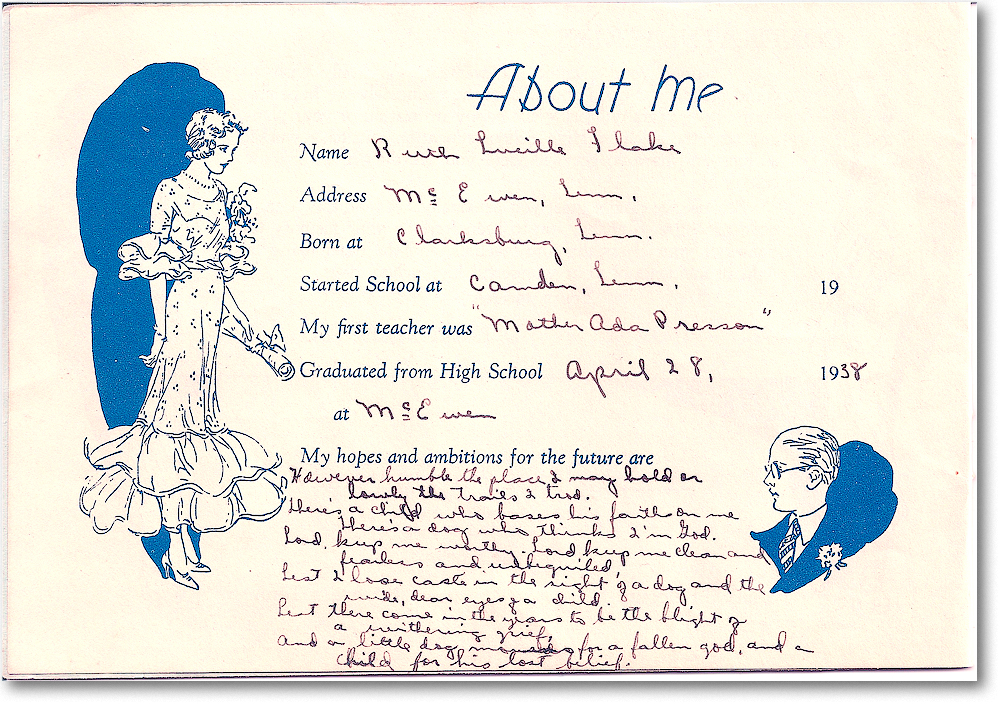 About Me
Name Ruth Lucille Flake
Address McEwen, Tenn.
Born at Clarksburg, Tenn.
Started School at Camden, Tenn. 19
My first teacher was "Mother Ada Presson"
Graduated from High School April 28, 1938
at McEwen
My hopes and ambitions for the future are
However humble the place I may hold or
lowly the trails I trod.
There's a child who bases his faith on me
There's a dog who thinks I'm God.
Lord, keep me worthy. Lord keep me clean and
fearless and unbeguiled,
Lest I lose caste in the sight of a dog and the
wide, dear eyes of a child.
Lest there come in the years to be the blight of
a withering grief,
And a little dog mourns for a fallen god, and a
child for his lost belief.